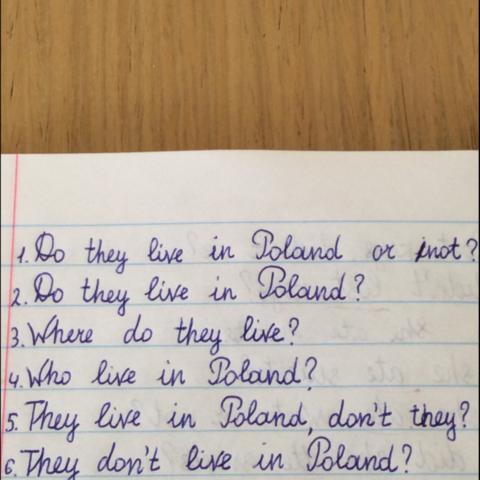 1. Do they live in Poland or not?
2. Do they live in Poland?
3. Where do they live?
4. Who live in Poland?
5. They live in Poland, don't they?
6. They don't live in Poland?